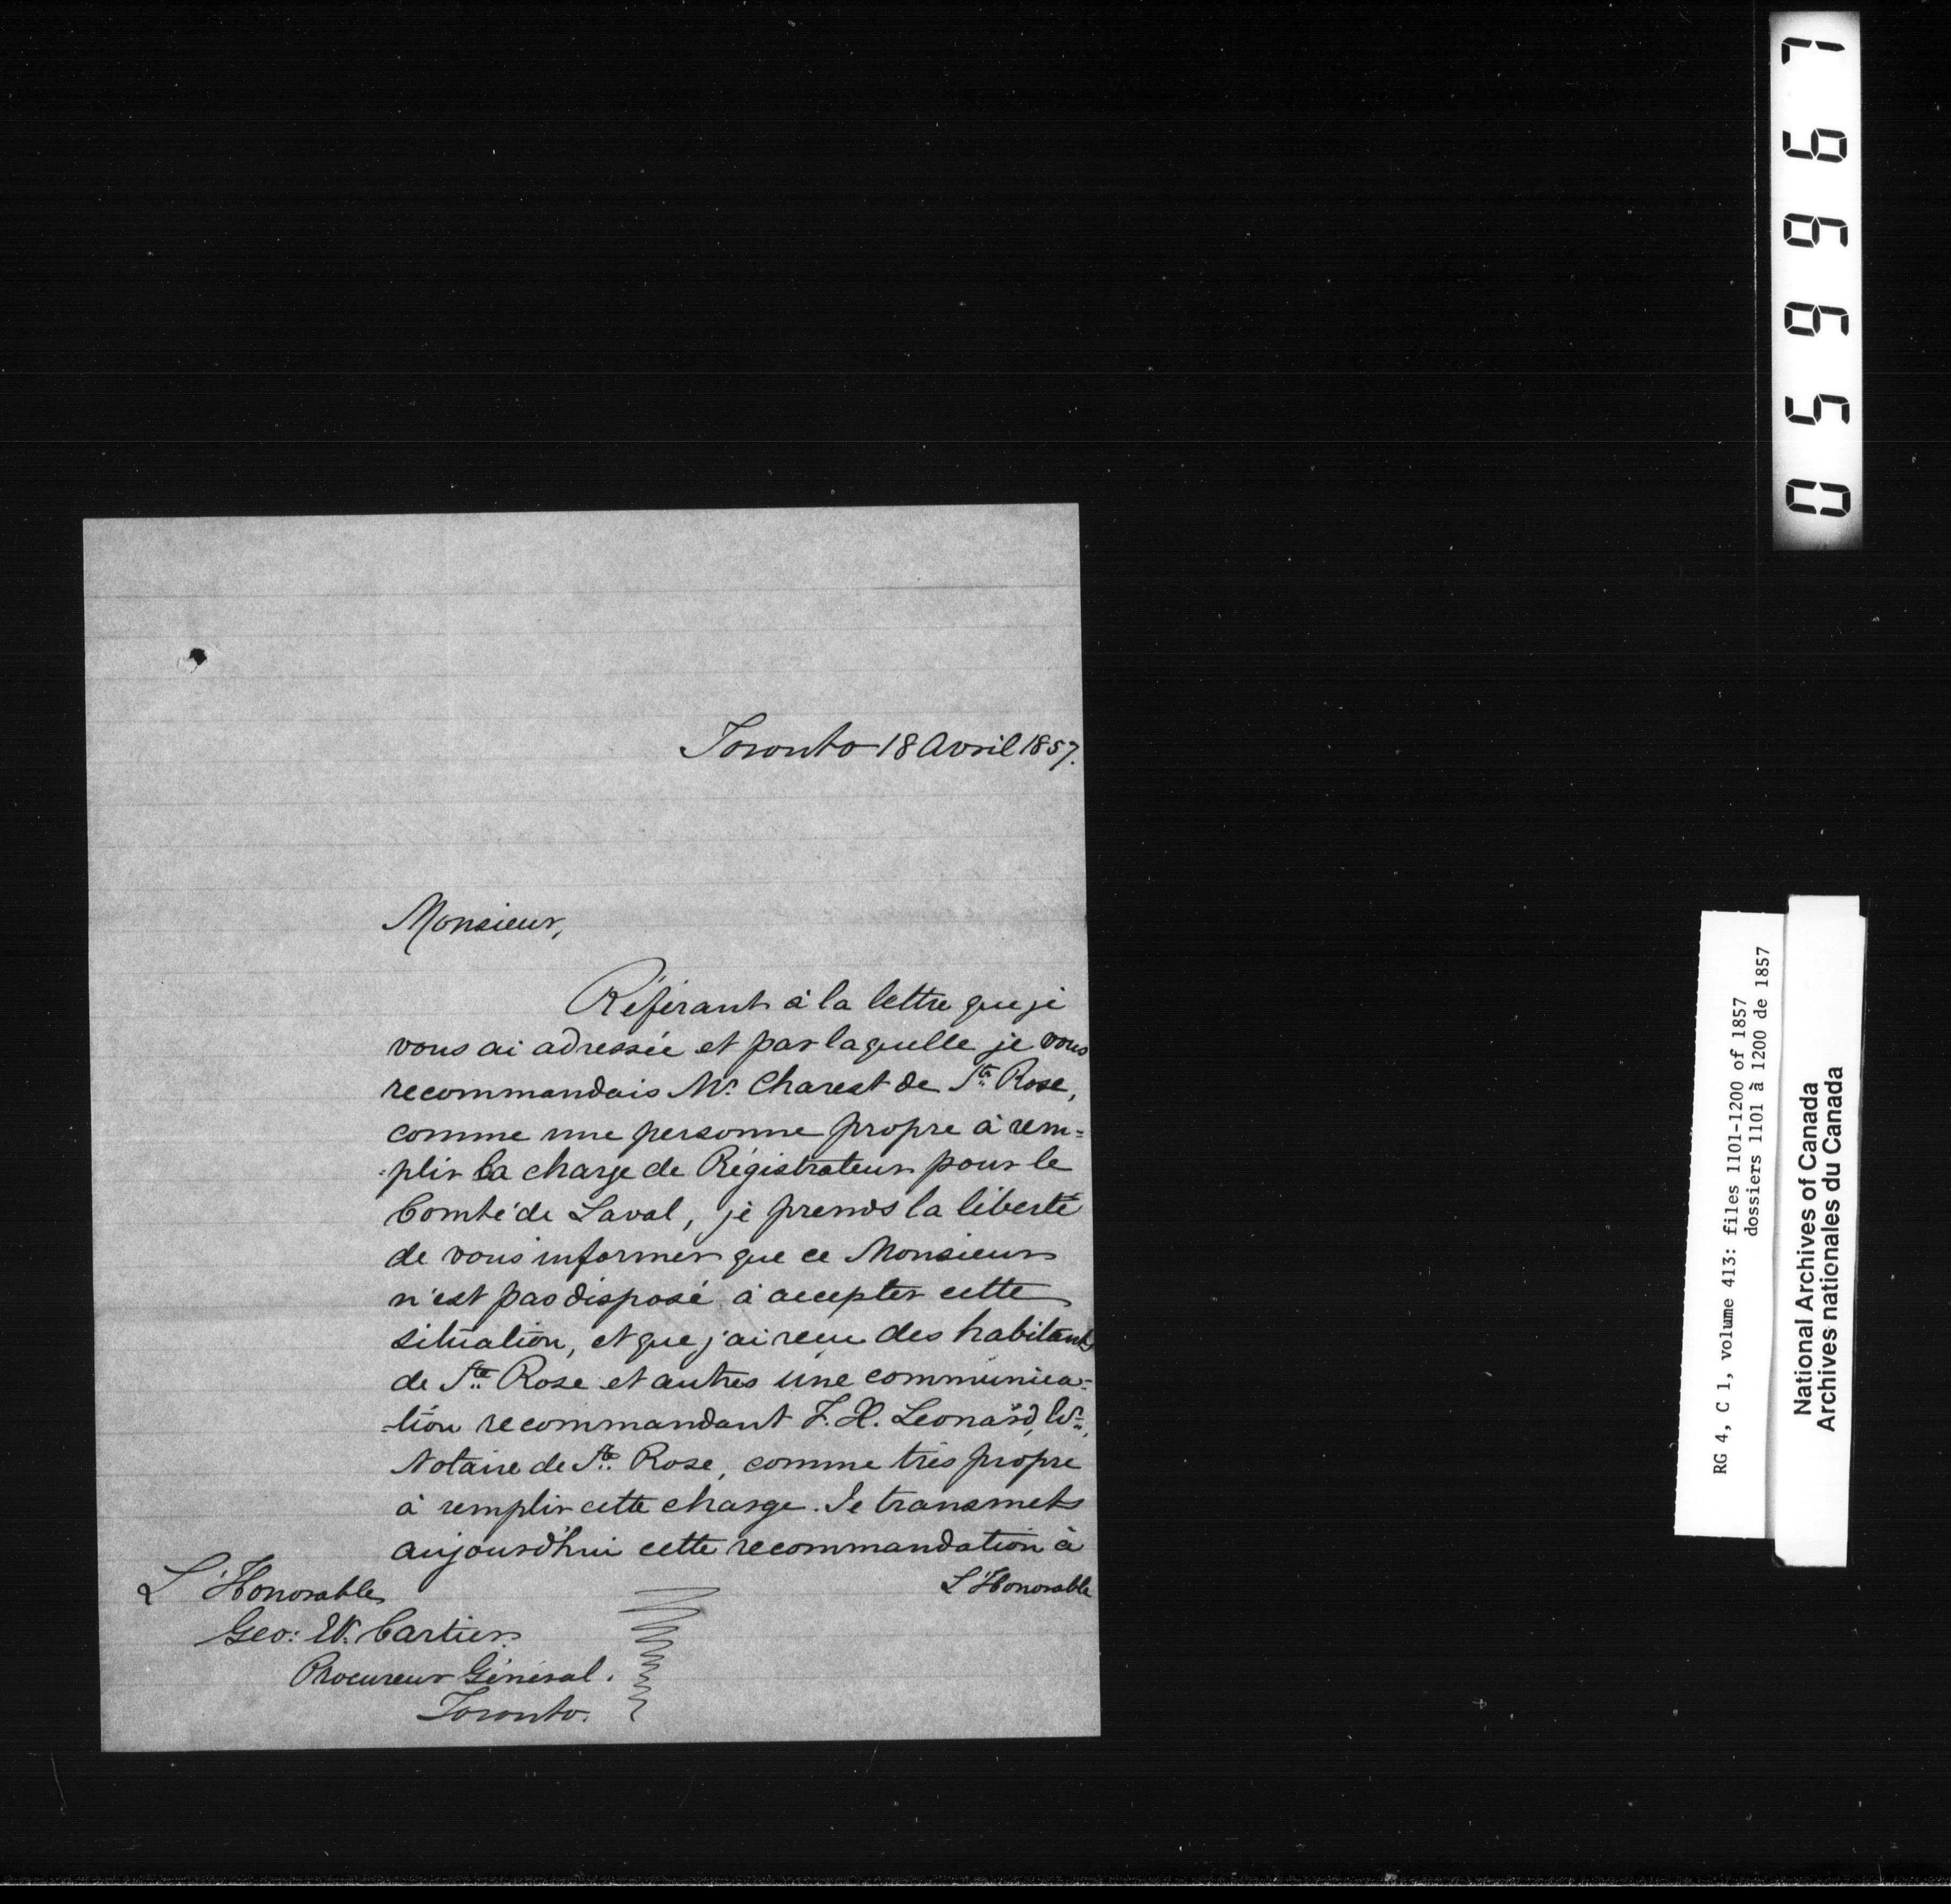 Toronto 18 Avril 1857.
Monsieur,
Référant à la lettre que je
vous ai adressée et par laquelle je vous
recommandais Mr. Charest de Ste. Rose,
comme une personne propre à rem=
-plir la charge de Régistrateur pour le
Comté de Laval, je prends la liberté
de vous informer que ce Monsieur
n'est pas disposé à accepter cette
situation, et que j'ai reçu des habitants
de Ste. Rose et autres une communica=
-tion recommandant F. H. Leonard,
Notaire de Ste. Rose, comme très propre
à remplir cette charge. Je transmets
aujourd'hui cette recommandation à
L'Honorable
L'Honorable
Geo: Et. Cartier
Procureur Général.
Toronto.
059967
RG 4, C 1, volume 413: files 1101-1200 of 1857
dossiers 1101 à 1200 de 1857
National Archives of Canada
Archives nationales du Canada